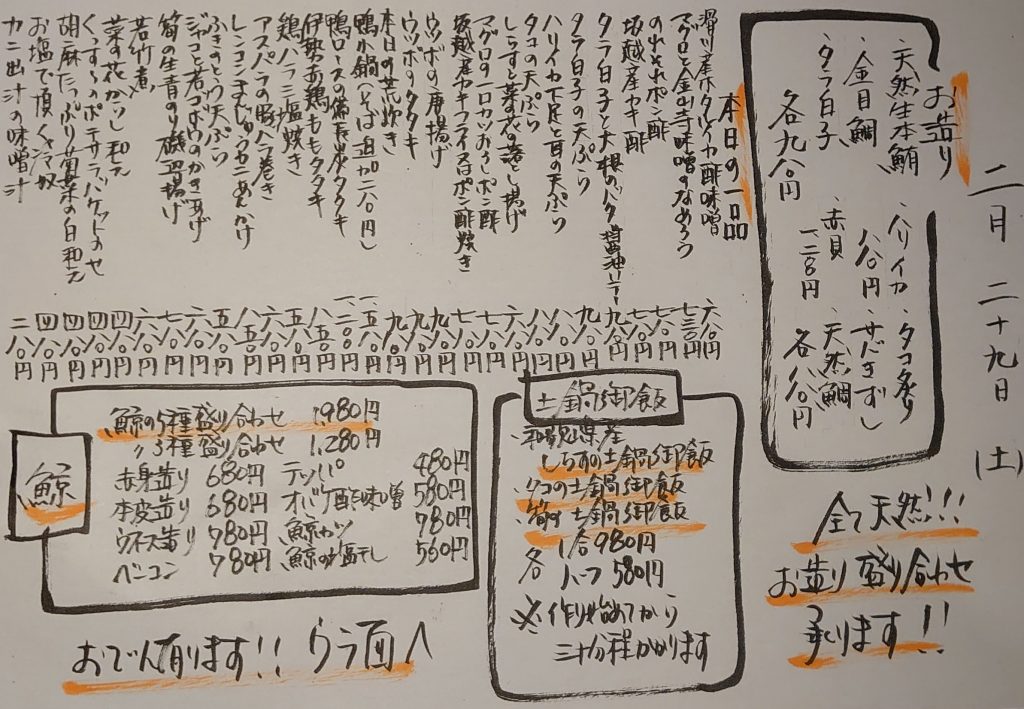 二月二十九日(土)
お造り
・天然生本鮪
・金目鯛
・タラ白子
各九八〇円
・ハリイカ
八八〇円
・赤貝
一二八〇円
・タコ炙り
・サバきずし
・天然鯛
各八八〇円
全て天然!!!
お造り盛り合わせ
承ります!!
本日の一品
滑川産ホタルイカ酢味噌 六八〇円
マグロと金山寺味噌のなめろう 七三〇円
のれそれポン酢 七八〇円
坂越産カキ酢
タラ白子と大根のバター醤油ソテー
タラ白子の天ぷら
ハリイカ下足と耳の天ぷら
タコの天ぷら
しらすと菜の花の落とし揚げ
マグロの一口カツおろしポン酢
坂越産カキフライ又はポン酢炊き
ウツボの唐揚げ
ウツボのタタキ
本日の荒炊き
鴨小鍋(そば追加二八〇円)
鴨ロースの備長炭タタキ
伊勢赤鶏ももタタキ
鶏ハラミ塩焼き
アスパラの豚バラ巻き
レンコンまんじゅうカニあんかけ
ふきのとう天ぷら
ジャコと若ゴボウのかきあげ
筍の生青のり磯部揚げ
若竹煮 六八〇円
菜の花からし和え 四八〇円
くんすモのポテサラ バケットのせ 四八〇円
胡麻たっぷり菊菜の白和え 四八〇円
お塩で頂くシマ奴 四八〇円
カニ出汁の味噌汁 二八〇円
土鍋御飯
・和歌山県産
しらすの土鍋御飯
・タコの土鍋御飯
・筍の土鍋御飯
各 1合980円
ハーフ 580円
※作り始めてから
三十分程かかります
鯨
鯨の5種盛り合わせ 1,980円
〃3種盛り合わせ 1,280円
赤身造り 680円
本皮造り 680円
ウネス造り 780円
ベーコン 780円
テッパ 480円
オバケ酢味噌 580円
鯨カツ 780円
鯨の塩干し 560円
おでん有ります!! ウラ面へ